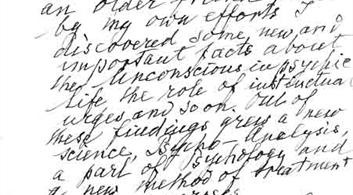 an older
by my own efforts I
discovered some new and
important facts about
the unconscious in psychic
life the role of instinctual
urges and so on. Out of
these findings grew a new
science, Psycho-Analysis,
a part of psychology and
a new method of treatment